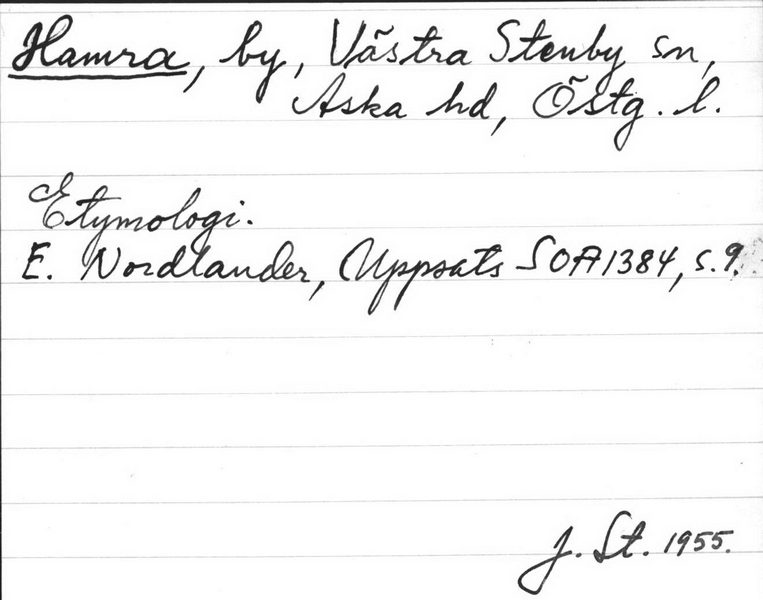 Hamra, by, Västra Stenby sn,
Aska hd, Östg. l.
Etymologi.
E. Nordlander, Uppsats SOA1384, s. 9.
J. St. 1955.